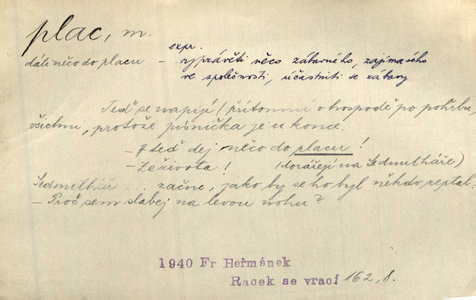 plac, m.
expr.
dáti něco do placu – vyprávěti něco zábavného, zajímavého
ve společnosti, účastniti se zábavy
Teď se napijí (přítomní v hospodě po pohřbu)
všichni, protože písnička je u konce.
– A teď dej něco do placu!
– Ze života! (dorážejí na Sedmilháře)
Sedmilhář začne, jako by se ho byl někdo zeptal.
– Proč sem slabej na levou nohu?
1940 Fr Heřmánek
Racek se vrací 162, 8.